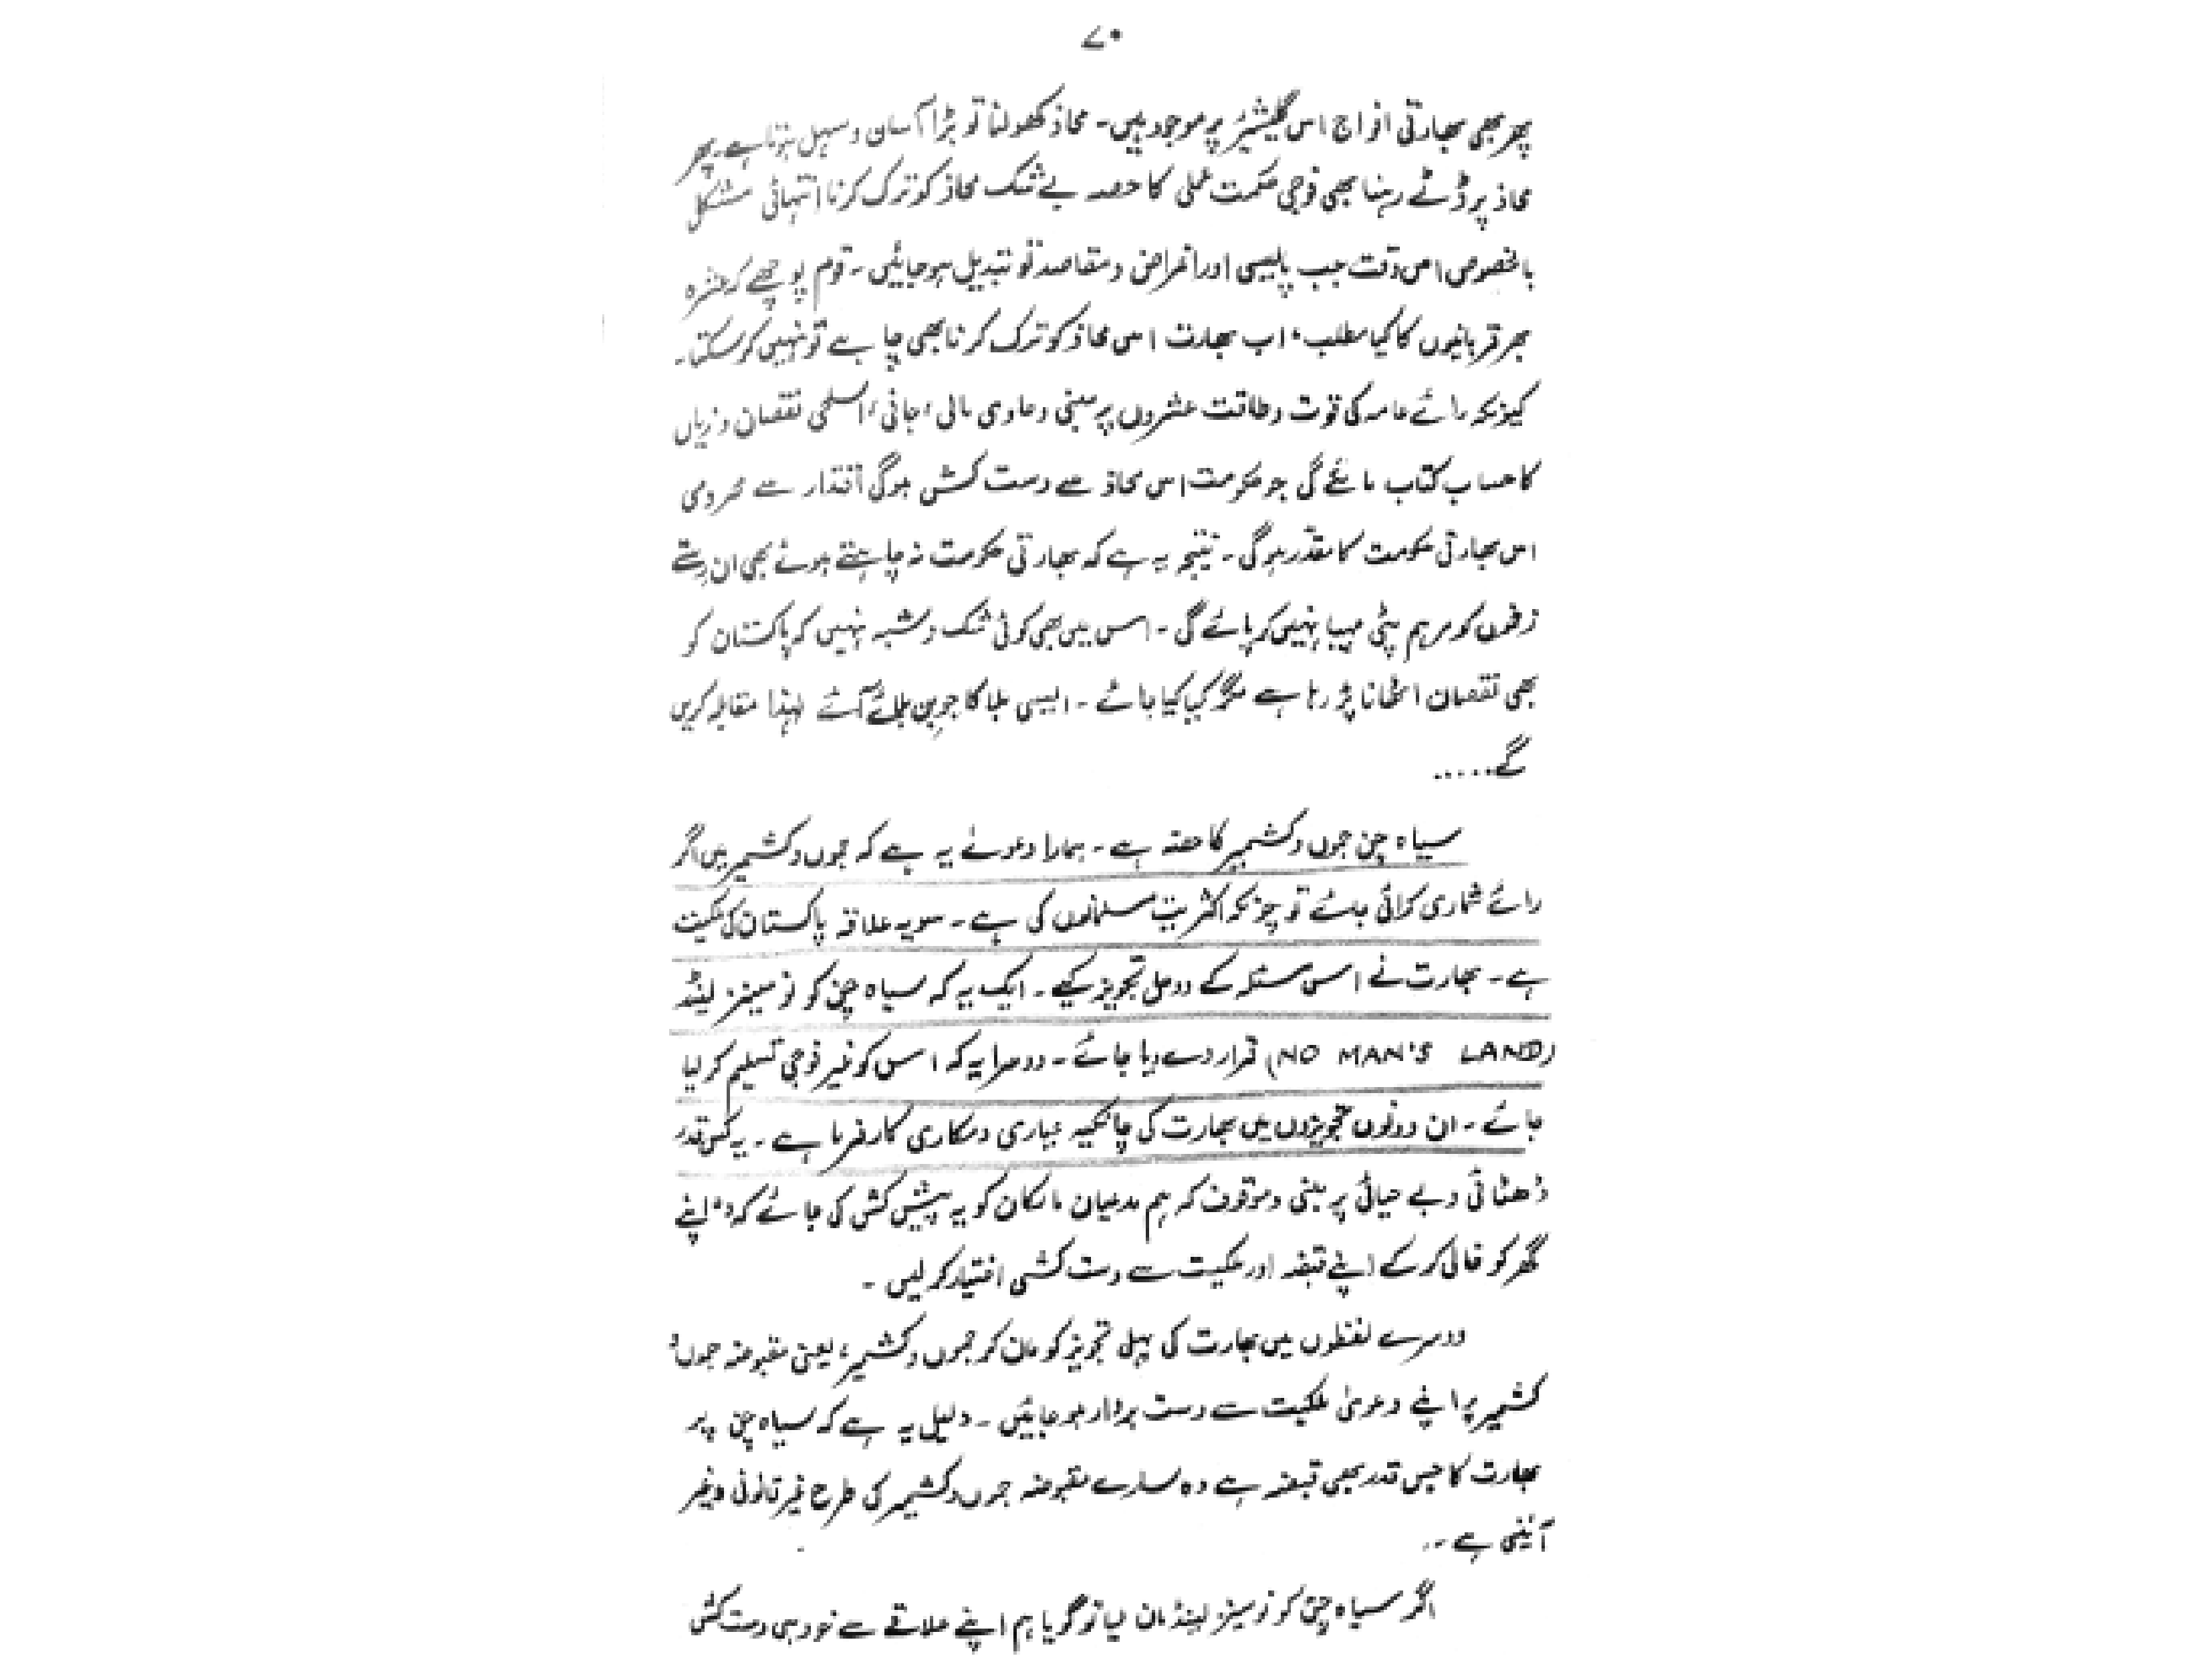 ۷۰
پھر بھی بھارتی افواج اس گلیشیئر پر موجود ہیں۔ محاذ کھولنا تو بڑا آسان و سہل ہوتا ہے۔ پھر
محاذ پر ڈٹے رہنا بھی فوجی حکمت عملی کا حصہ بے شک محاذ کو ترک کرنا انتہائی مشکل
بالخصوص اس وقت جب پالیسی اور اغراض و مقاصد تو تبدیل ہو جائیں۔ قوم پوچھے کہ عشرہ
بھر قربانیوں کا کیا مطلب، اب بھارت اس محاذ کو ترک کرنا بھی چاہے تو نہیں کر سکتا۔
کیونکہ رائے عامہ کی قوت و طاقت عشروں پر مبنی و حاوی مالی، جانی، اسلحی نقصان و زیاں
کا حساب کتاب مانگے گی جو حکومت اس محاذ سے دست کش ہوگی اقتدار سے محرومی
اس بھارتی حکومت کا مقدر ہوگی۔ نتیجہ یہ ہے کہ بھارتی حکومت نہ چاہتے ہوئے بھی ان رستے
زخموں کو مرہم پٹی مہیا نہیں کر پائے گی۔ اس میں بھی کوئی شک و شبہ نہیں کہ پاکستان کو
بھی نقصان اٹھانا پڑ رہا ہے مگر کیا کیا جائے۔ ایسی بلا کا جو بن بلائے آئے لہذا مقابلہ کریں
گے.....
سیاہ چن جموں و کشمیر کا حصہ ہے۔ ہمارا دعوٰے یہ ہے کہ جموں و کشمیر میں اگر
رائے شماری کرائی جائے تو چونکہ اکثریت مسلمانوں کی ہے۔ سو یہ علاقہ پاکستان کی ملکیت
ہے۔ بھارت نے اس مسئلہ کے دو حل تجویز کیے۔ ایک یہ کہ سیاہ چن کو نو مینز لینڈ
(NO MAN'S LAND) قرار دے دیا جائے۔ دوسرا یہ کہ اس کو غیر فوجی تسلیم کر لیا
جائے۔ ان دونوں تجویزوں میں بھارت کی چانکیہ عیاری و مکاری کارفرما ہے۔ یہ کس قدر
ڈھٹائی و بے حیائی پر مبنی و موقوف کہ ہم مدعیان مالکان کو یہ پیش کش کی جائے کہ "اپنے
گھر کو خالی کر کے اپنے قبضہ اور ملکیت سے دست کشی اختیار کر لیں۔
دوسرے لفظوں میں بھارت کی پہلی تجویز کو مان کر جموں و کشمیر، یعنی مقبوضہ جموں و
کشمیر پر اپنے دعویٰ ملکیت سے دست بردار ہو جائیں۔ دلیل یہ ہے کہ سیاہ چن پر
بھارت کا جس قدر بھی قبضہ ہے وہ سارے مقبوضہ جموں و کشمیر کی طرح غیر قانونی و غیر
آئینی ہے۔
اگر سیاہ چن کو نو مینز لینڈ مان لیا تو گویا ہم اپنے علاقے سے خود ہی دست کشی